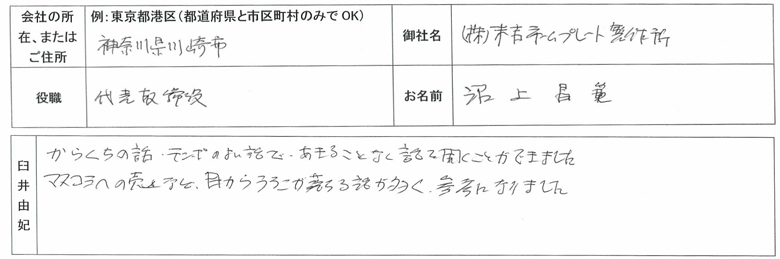 会社の所在、またはご住所
例：東京都港区（都道府県と市区町村のみでOK）
神奈川県川崎市
御社名
(株)末吉ネームプレート製作所
役職
代表取締役
お名前
沼上昌範
臼井由妃
からくちの話・テンポのよい話で、あきることなく話を聞くことができました
マスコミへの売込など、目からうろこが落ちる話が多く、参考になりました